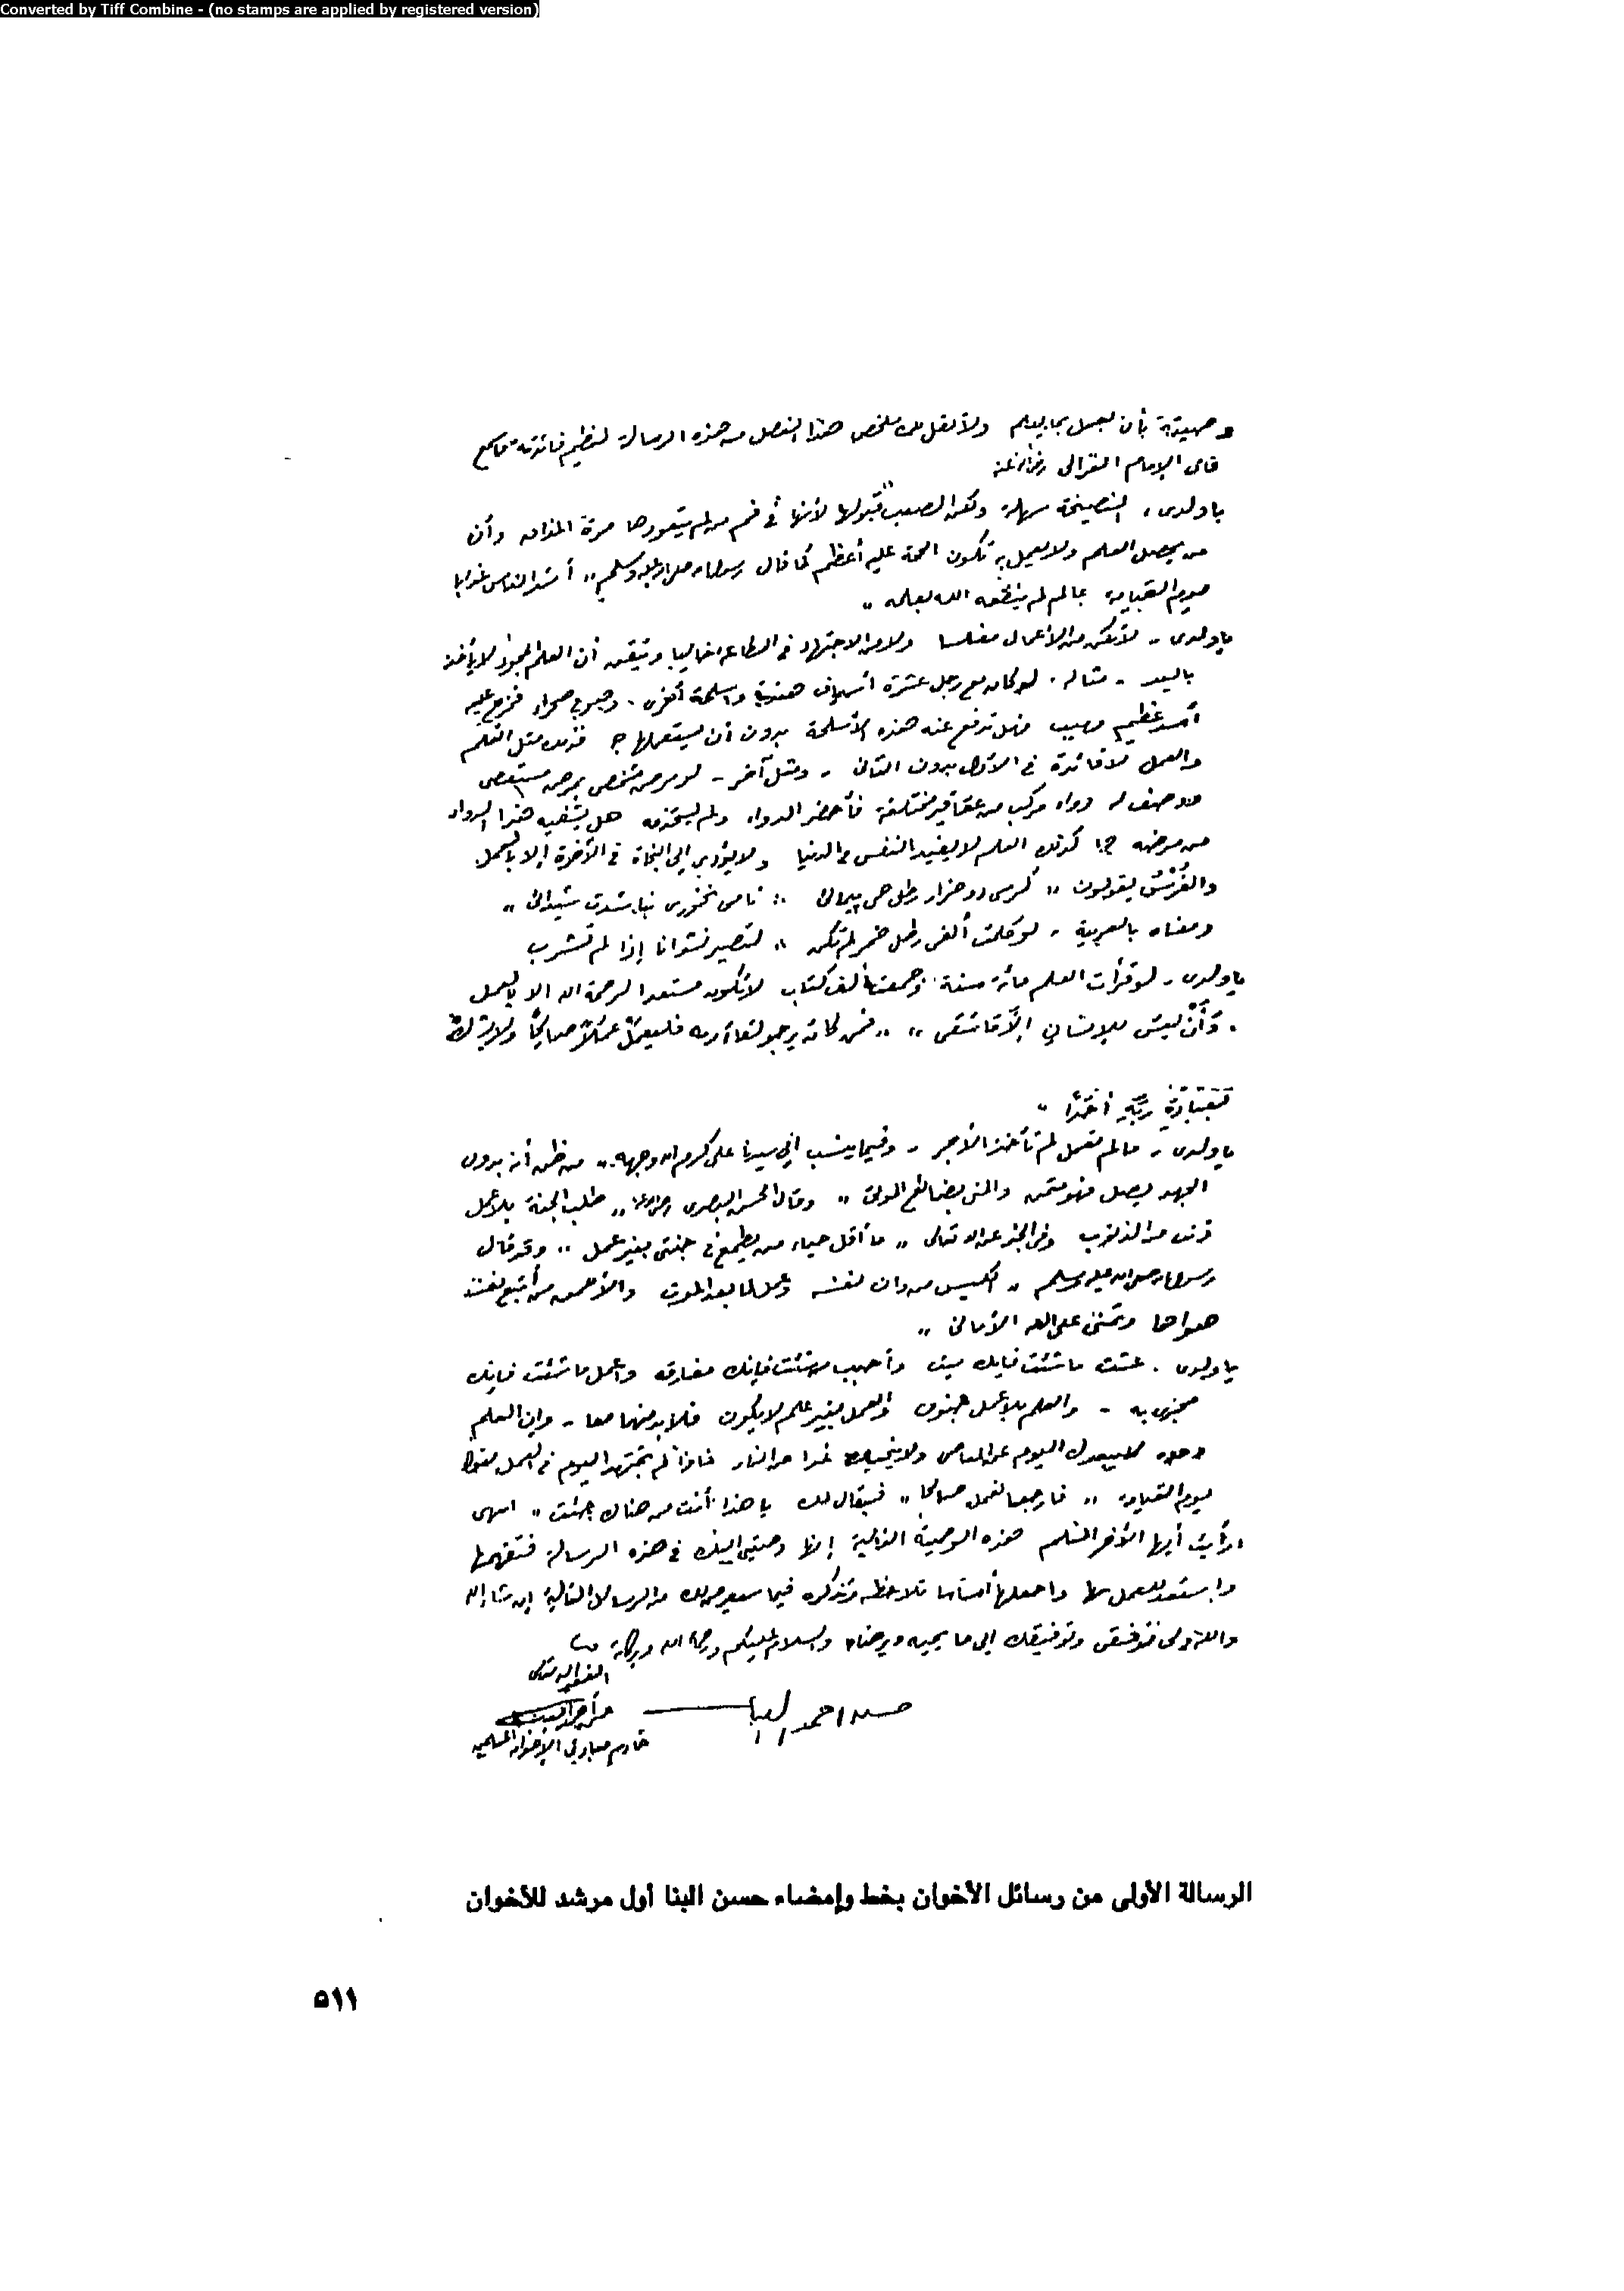 Converted by Tiff Combine - (no stamps are applied by registered version)
بأن يعمل بما يعلم ولأنقل لك ملخص هذا الفصل من هذه الرسالة لعظيم فائدته فاسمع
قال الإمام الغزالى رضى الله عنه
ياولدى، النصيحة سهلة ولكن الصعب قبولها لأنها فى فم من لم يتعودها مرة المذاق وأن
من يحصل العلم ولا يعمل به تكون الحجة عليه أعظم كما قال رسول الله صلى الله عليه وسلم " أشد الناس عذابا
يوم القيامة عالم لم ينفعه الله بعلمه "
ياولدى - لا تكن من الأعمال مفلسا ولا من الاجتهاد فى الطاعة خاليا وتيقن أن العلم المجرد لا يأخذ
باليد - مثاله . لو كان مع رجل عشرة أسياف هندية وأسلحة أخرى . وهو فى صحراء فخرج عليه
أسد عظيم مهيب فهل تدفع عنه هذه الأسلحة بدون أن يستعملها ؟ فذلك مثل العلم
والعمل لا فائدة فى الأول بدون الثانى - ومثل آخر - لو مرض شخص بمرض مستعص
ووصف له دواء مركب من عقاقير مختلفة فأحضر الدواء ولم يستخدمه هل يشفيه هذا الدواء
من مرضه ؟! كذلك العلم لا يفيد النفس فى الدنيا ولا يؤدى إلى النجاة فى الآخرة إلا بالعمل
والفُرْسُ يقولون " كرمى دو هزار رطل مى پيمائى :: تا مى نخورى نباشدت شيدائى "
ومعناه بالعربية - لو كلت ألفى رطل خمر لم تكن " لتصير نشوانا إذا لم تشرب
ياولدى - لو قرأت العلم مائة سنة وجمعت ألف كتاب لا تكون مستعدا لرحمة الله إلا بالعمل
. وَأَنْ لَيْسَ للإِنسَانِ إِلاَّ مَا سَعَى ،، " فمن كان يرجو لقاء ربه فليعمل عملاً صالحًا ولا يشرك
بِعِبَادَةِ رَبِّهِ أَحَدًا "
ياولدى - مالم تعمل لم تأخذ الأجر - وفيما ينسب إلى سيدنا على كرم الله وجهه " من ظن أنه بدون
الجهد يصل فهو متمن والمنى بضائع الموتى " وقال الحسن البصرى " طلب الجنة بلا عمل
ذنب من الذنوب وفى الخبر عن الله تعالى " ما أقل حياء من يطمع فى جنتى بغير عمل " وقد قال
رسول الله صلى الله عليه وسلم " الكيس من دان نفسه وعمل لما بعد الموت والأحمق من أتبع نفسه
هواها وتمنى على الله الأمانى "
ياولدى . عش ما شئت فإنك ميت وأحبب من شئت فإنك مفارقه واعمل ما شئت فإنك
مجزى به - والعلم بلا عمل جنون والعمل بغير علم لا يكون فلا بد منهما معا - وإن العلم
وحده لا يبعدك اليوم عن المعاصى ولا ينجيك غدا من النار فإذا لم تجتهد اليوم فى العمل تقول
يوم القيامة " فارجعنا نعمل صالحا " فيقال لك يا هذا أنت من هناك جئت " انتهى
أرأيت أيها الأخ المسلم هذه الوصية الغالية إنها وصيتى إليك فى هذه الرسالة فتفهمها
واستعد للعمل بها واجعلها أساسا تلاحظه وتذكره فيما سيعرض لك من الرسائل التالية إن شاء الله
والله ولى توفيقى وتوفيقك إلى ما يحبه ويرضاه والسلام عليكم ورحمة الله وبركاته
الفقير إلى الله تعالى
حسن أحمد البنا
حسن أحمد البنا
خادم مبادئ الإخوان المسلمين
الرسالة الأولى من رسائل الأخوان بخط وإمضاء حسن البنا أول مرشد للأخوان
٥١١